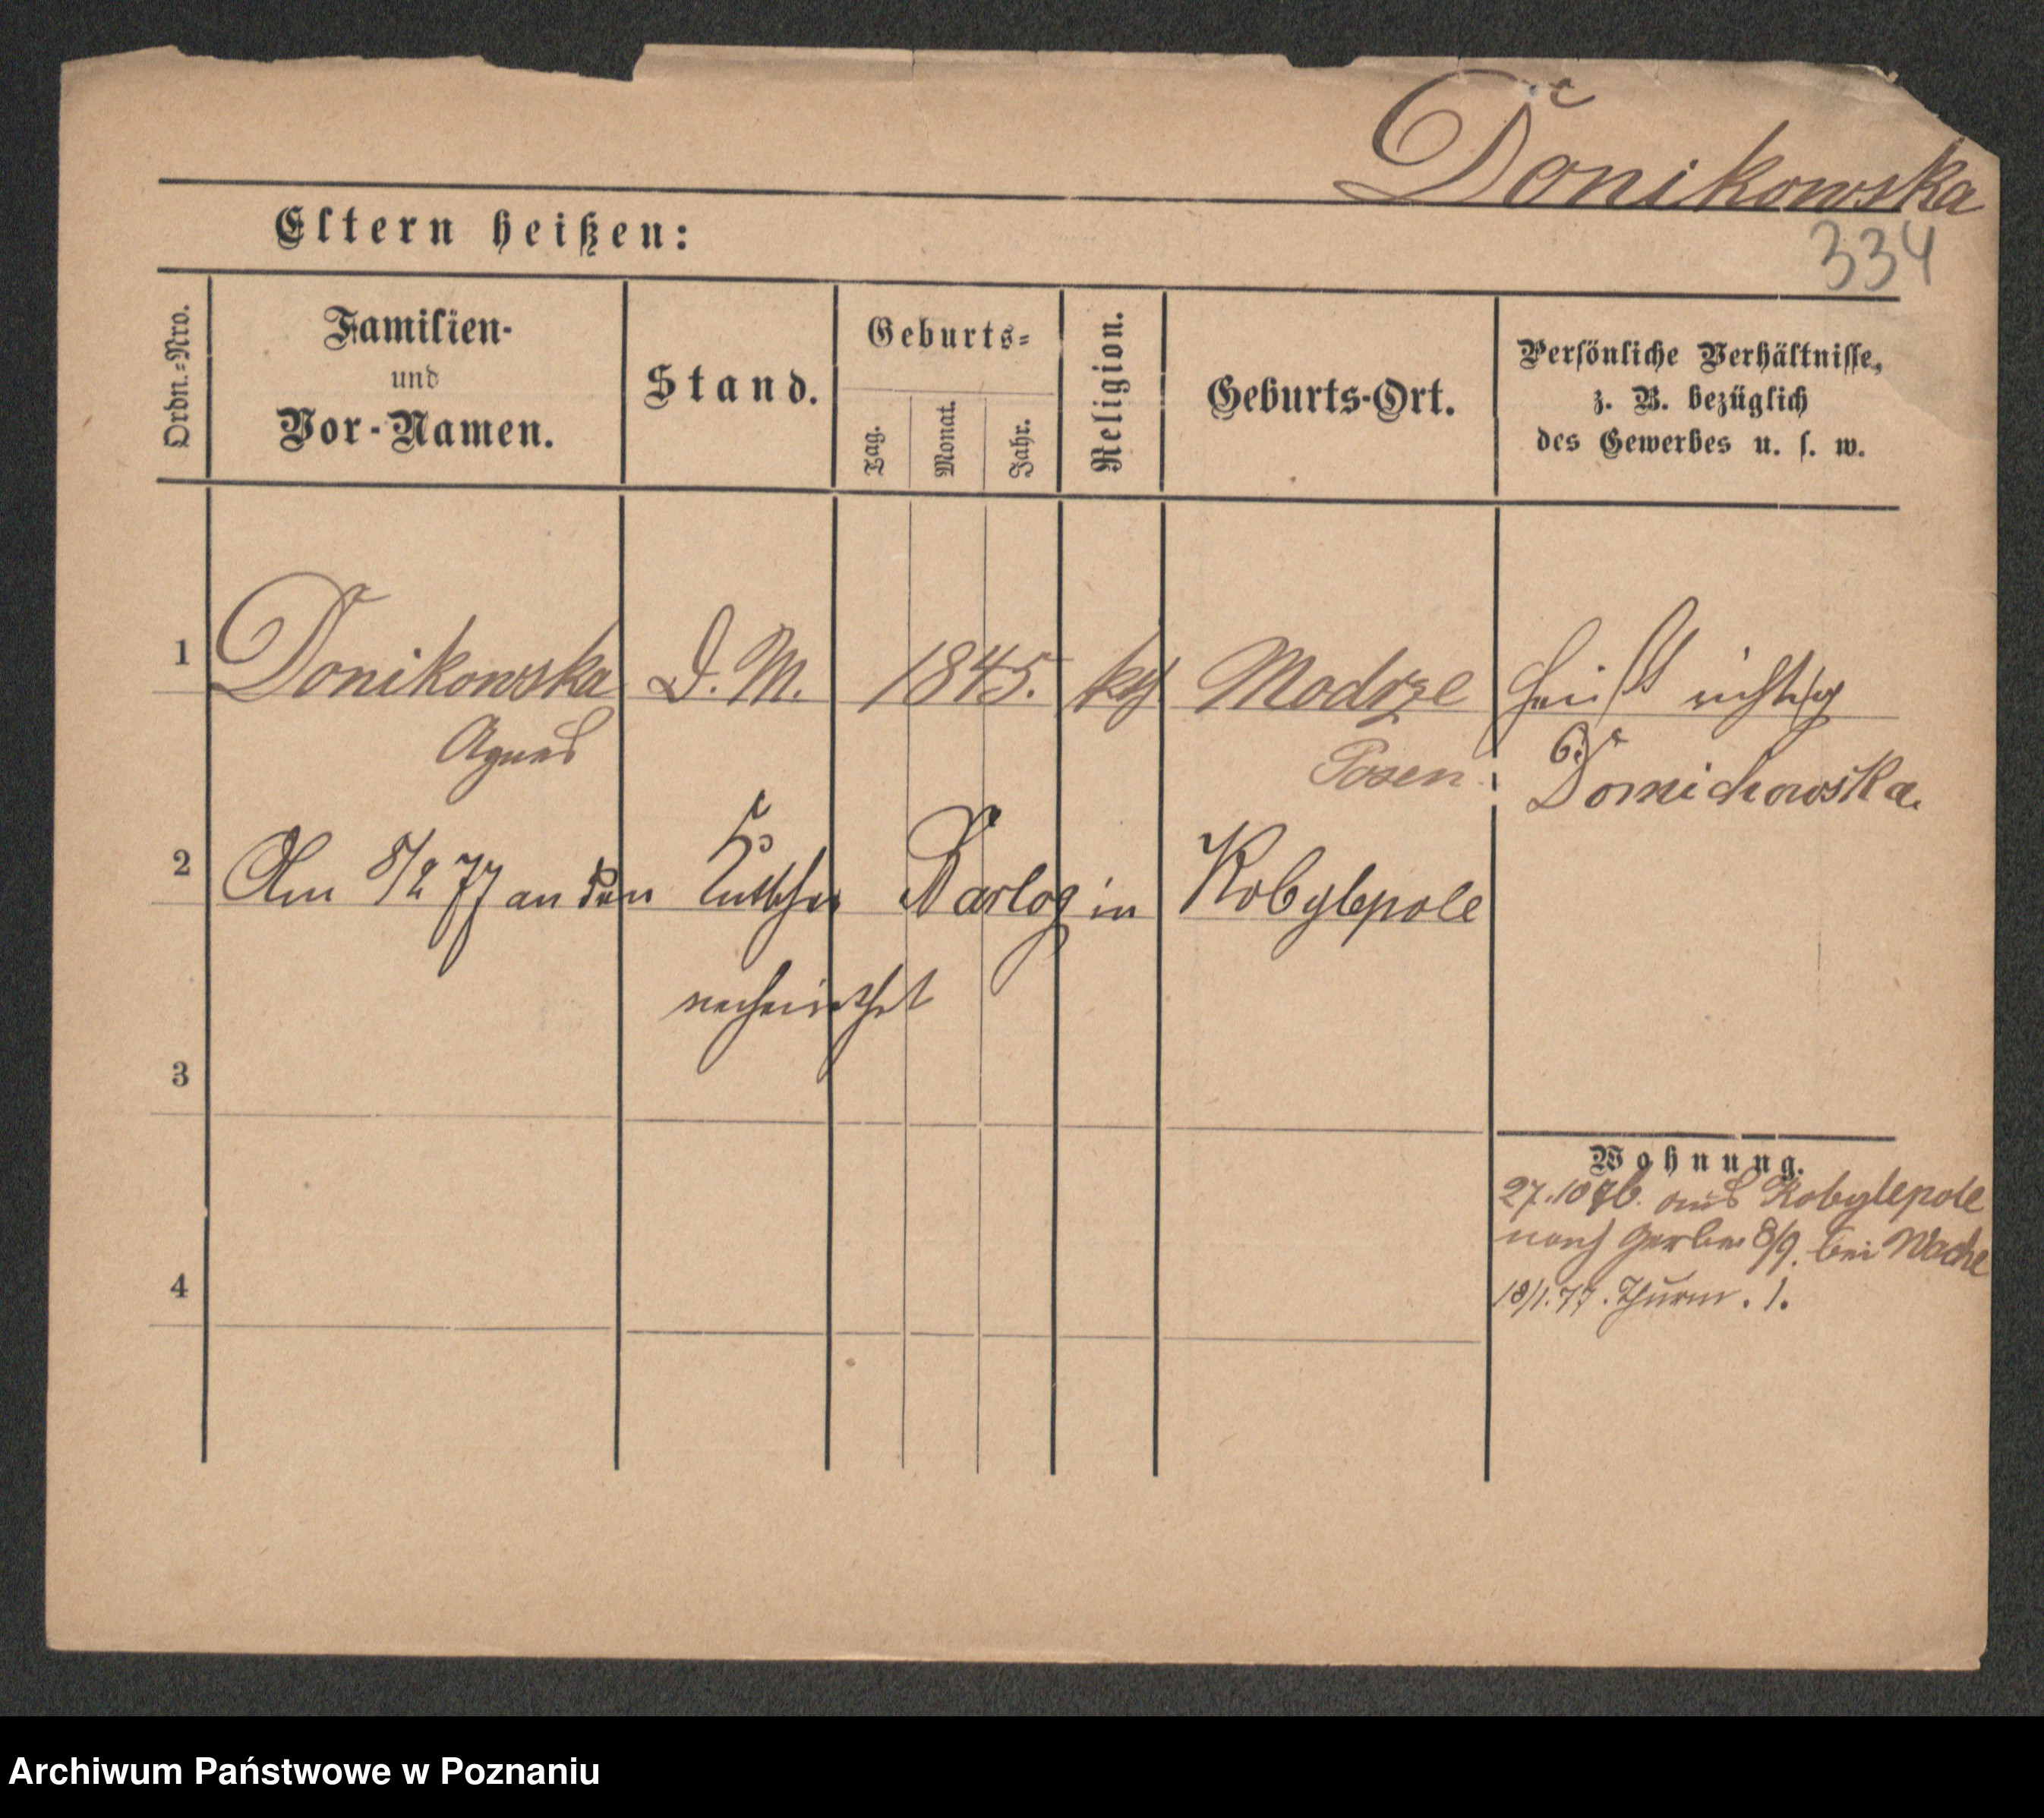 Donikowska
334
Eltern heißen:
Ordn.-Nro.
Familien-
und
Vor-Namen.
Stand.
Geburts-
Tag.
Monat.
Jahr.
Religion.
Geburts-Ort.
Persönliche Verhältnisse,
z. B. bezüglich
des Gewerbes u. s. w.
1 Donikowska D. M. 1845. kth Modrze heißt richtig
Agnes Posen. Domichowska.
2 Am 8/2 77 an den Kutscher Barlog in Kobylepole
verheirathet
3
Wohnung.
27.10 76. aus Kobylepole
nach Gerber 8/9. bei Wache
18/1.77. Thurm. 1.
4
Archiwum Państwowe w Poznaniu